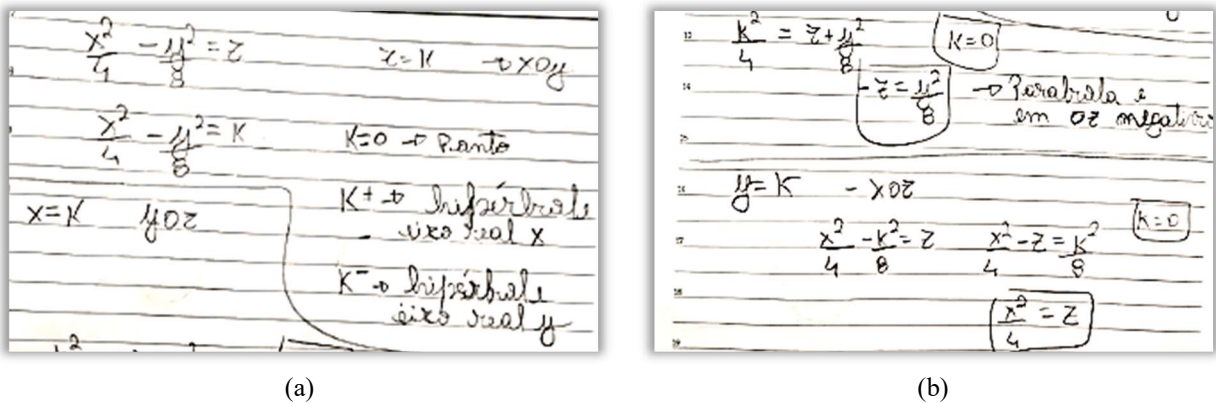 x²/4 - y²/8 = z    z=K → xOy
x²/4 - y²/8 = K    K=0 → Ponto
x=K    yOz    K+ → hipérbole
eixo real x
K- → hipérbole
eixo real y
(a)
K²/4 = z + y²/8    K=0
-z = y²/8 → Parabola e
em oz negativo
y=K - xOz
K=0
x²/4 - K²/8 = z    x²/4 - z = K²/8
x²/4 = z
(b)